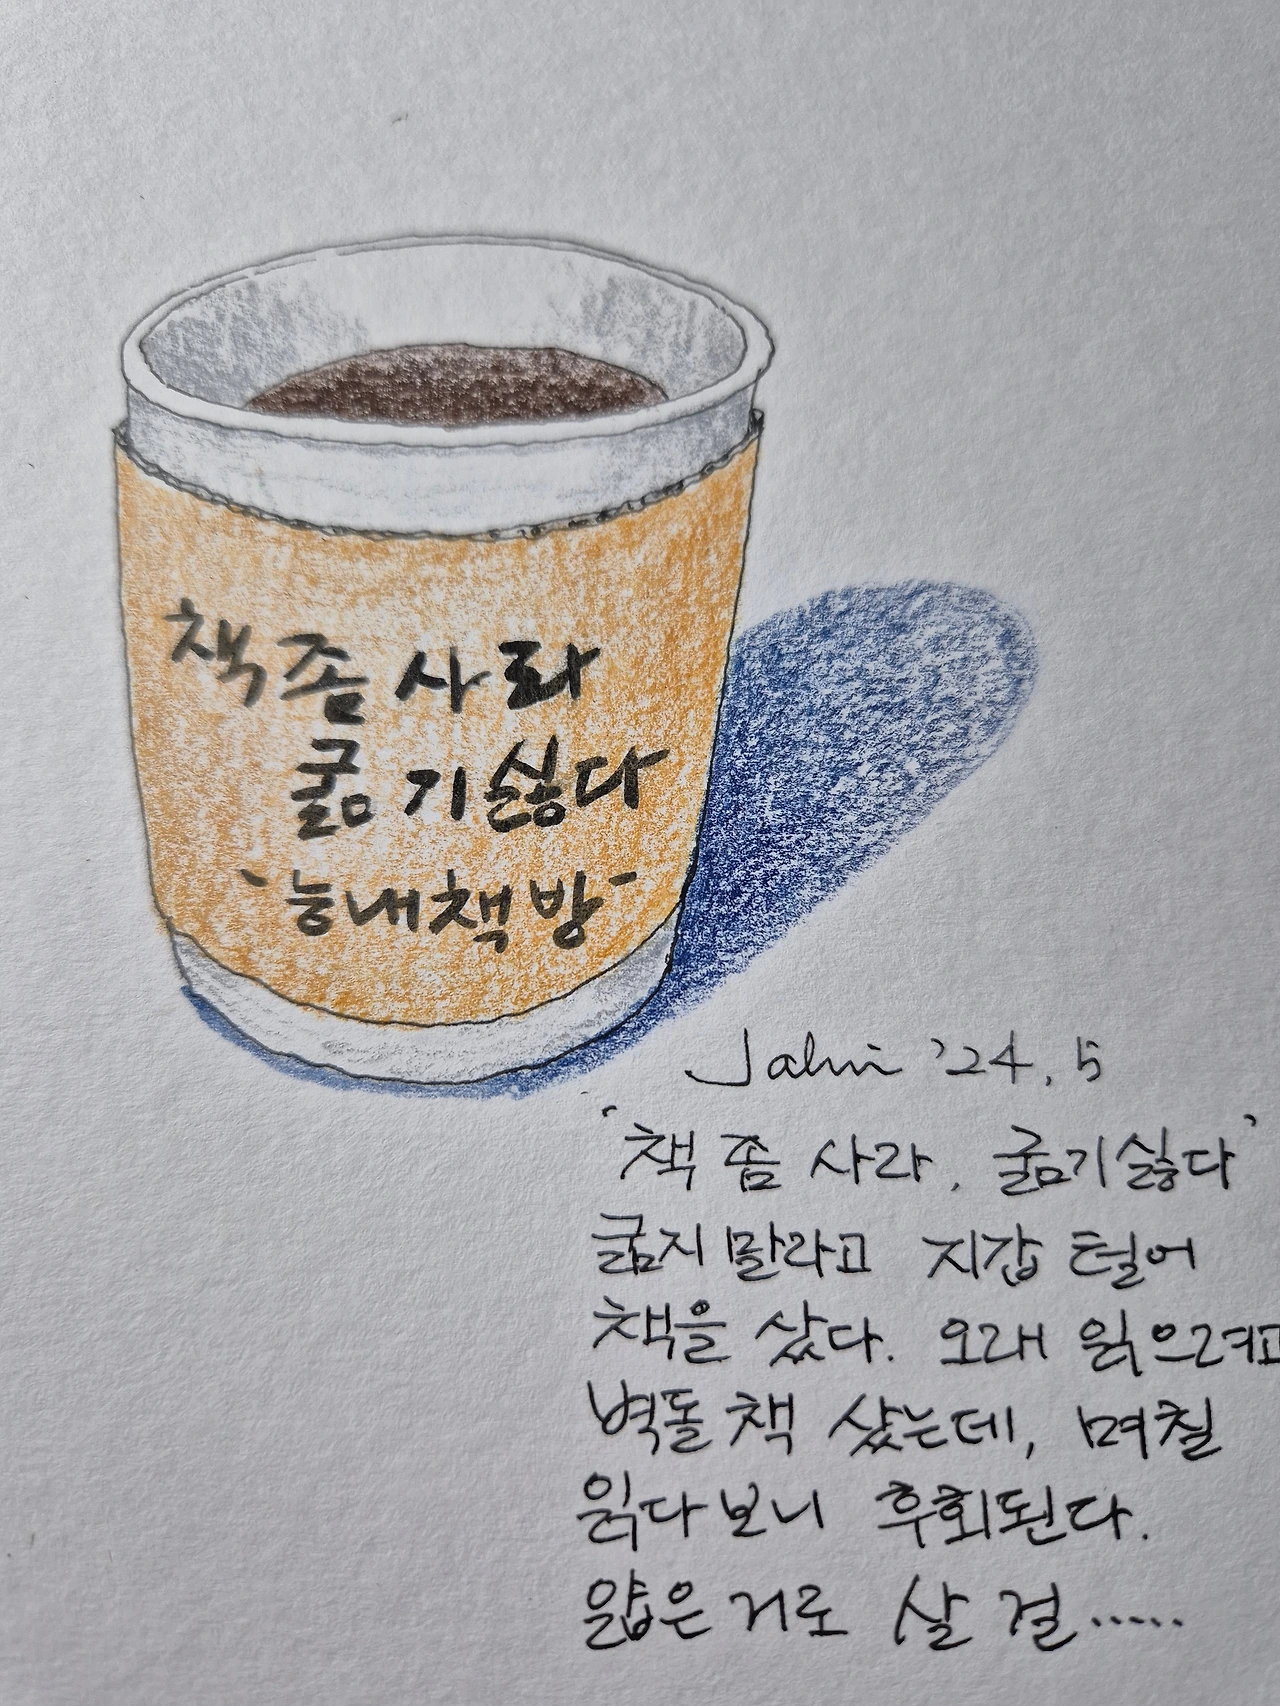 책 좀 사라
굶기싫다
"능내책방"
Jahni '24. 5
'책 좀 사라. 굶기싫다'
굶지말라고 지갑 털어
책을 샀다. 오래 읽으려고
벽돌책 샀는데, 며칠
읽다보니 후회된다.
얇은 거로 살 걸.....